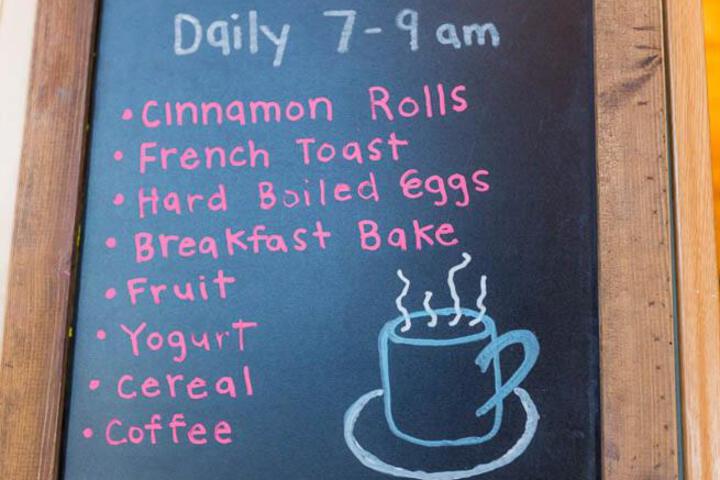 Daily 7-9 am
• Cinnamon Rolls
• French Toast
• Hard Boiled Eggs
• Breakfast Bake
• Fruit
• Yogurt
• Cereal
• Coffee